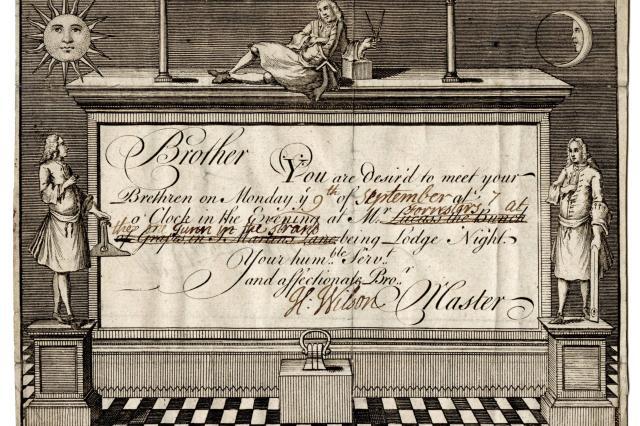 Brother You are desir'd to meet your
Brethren on Monday yͤ 9th of September at 7
o'Clock in the Evening at Mr at
the Gunn in the Strand
of Grapes in St. Martins Lane being Lodge Night.
Your humble Servt.
and affectionate Bror.
H. Wilson Master